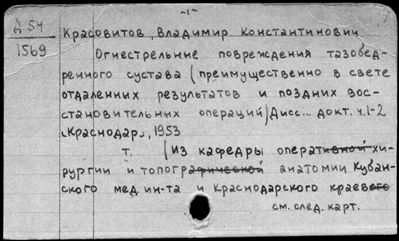 -1-
Д 54
1569
Красовитов, Владимир Константинович
Огнестрельные повреждения тазобед-
ренного сустава (преимущественно в свете
отдаленных результатов и поздних вос-
становительных операций) Дисс... докт. ч.1-2
"Краснодар", 1953
т. (Из кафедры оперативной хи-
рургии и топографической анатомии Кубан-
ского мед. ин-та и Краснодарского краевого
см. след. карт.